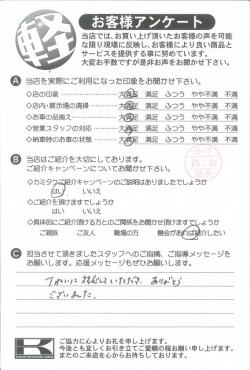 軽
お客様アンケート
当店では、お買い上げ頂いたお客様の声を可能
な限り現場に反映し、お客様により良い商品と
サービスを提供する事に努めています。
大変お手数ですが是非お声をお聞かせ下さい。
A 当店を実際にご利用になった印象をお聞かせ下さい。
◇店の印象 大満足 満足 ふつう やや不満 不満
◇店内・展示場の清掃 大満足 満足 ふつう やや不満 不満
◇お車の品揃え 大満足 満足 ふつう やや不満 不満
◇営業スタッフの対応 大満足 満足 ふつう やや不満 不満
◇納車時のお車の状態 大満足 満足 ふつう やや不満 不満
B 当店はご紹介を大切にしております。
ご紹介キャンペーンについてお聞かせ下さい。
◇カミタケご紹介キャンペーンのご説明はありましたでしょうか
はい いいえ
◇ご紹介を頂けますでしょうか
はい いいえ
◇具体的にご紹介頂ける方とのご関係をお聞かせ頂けますでしょうか
ご親族 ご友人 職場の方 機会があれば紹介したい
C 担当させて頂きましたスタッフへのご指摘、ご指導メッセージを
お願いします。応援メッセージもぜひお願いします。
ていねいに 対応していただき、ありがとう
ございました。
K
ご協力に心よりお礼を申し上げます。
今後とも宜しくお引き立てご愛顧の程お願い申し上げます。
またのご来店を心からお待ちしております。